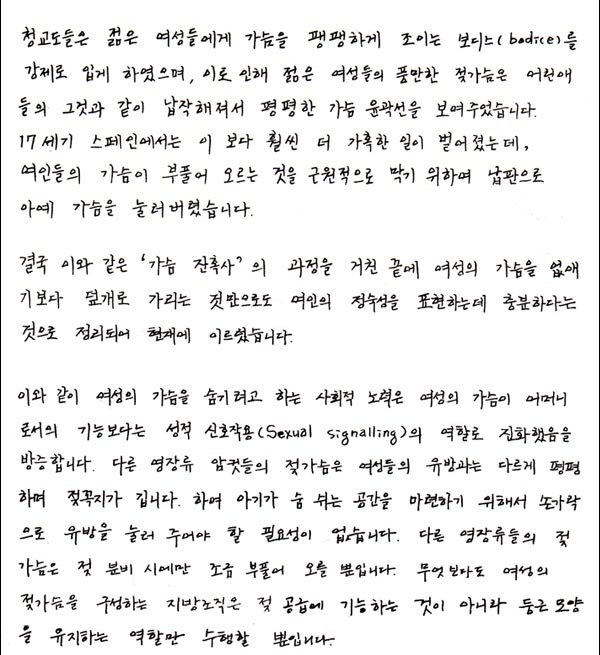 청교도들은 젊은 여성들에게 가슴을 팽팽하게 조이는 보디스(bodice)를
강제로 입게 하였으며, 이로 인해 젊은 여성들의 풍만한 젖가슴은 어린애
들의 그것과 같이 납작해져서 평평한 가슴 윤곽선을 보여주었습니다.
17세기 스페인에서는 이 보다 훨씬 더 가혹한 일이 벌어졌는데,
여인들의 가슴이 부풀어 오르는 것을 근원적으로 막기 위하여 납판으로
아예 가슴을 눌러버렸습니다.
결국 이와 같은 '가슴 잔혹사"의 과정을 거친 끝에 여성의 가슴을 없애
기보다 덮개로 가리는 것만으로도 여인의 정숙성을 표현하는데 충분하다는
것으로 정리되어 현재에 이르렀습니다.
이와 같이 여성의 가슴을 숨기려고 하는 사회적 노력은 여성의 가슴이 어머니
로서의 기능보다는 성적 신호작용(Sexual signalling)의 역할로 진화했음을
방증합니다. 다른 영장류 암컷들의 젖가슴은 여성들의 유방과는 다르게 평평
하며 젖꼭지가 깁니다. 하여 아기가 숨 쉬는 공간을 마련하기 위해서 손가락
으로 유방을 눌러 주어야 할 필요성이 없습니다. 다른 영장류들의 젖
가슴은 젖 분비 시에만 조금 부풀어 오를 뿐입니다. 무엇보다도 여성의
젖가슴을 구성하는 지방조직은 젖 공급에 기능하는 것이 아니라 둥근 모양
을 유지하는 역할만 수행할 뿐입니다.